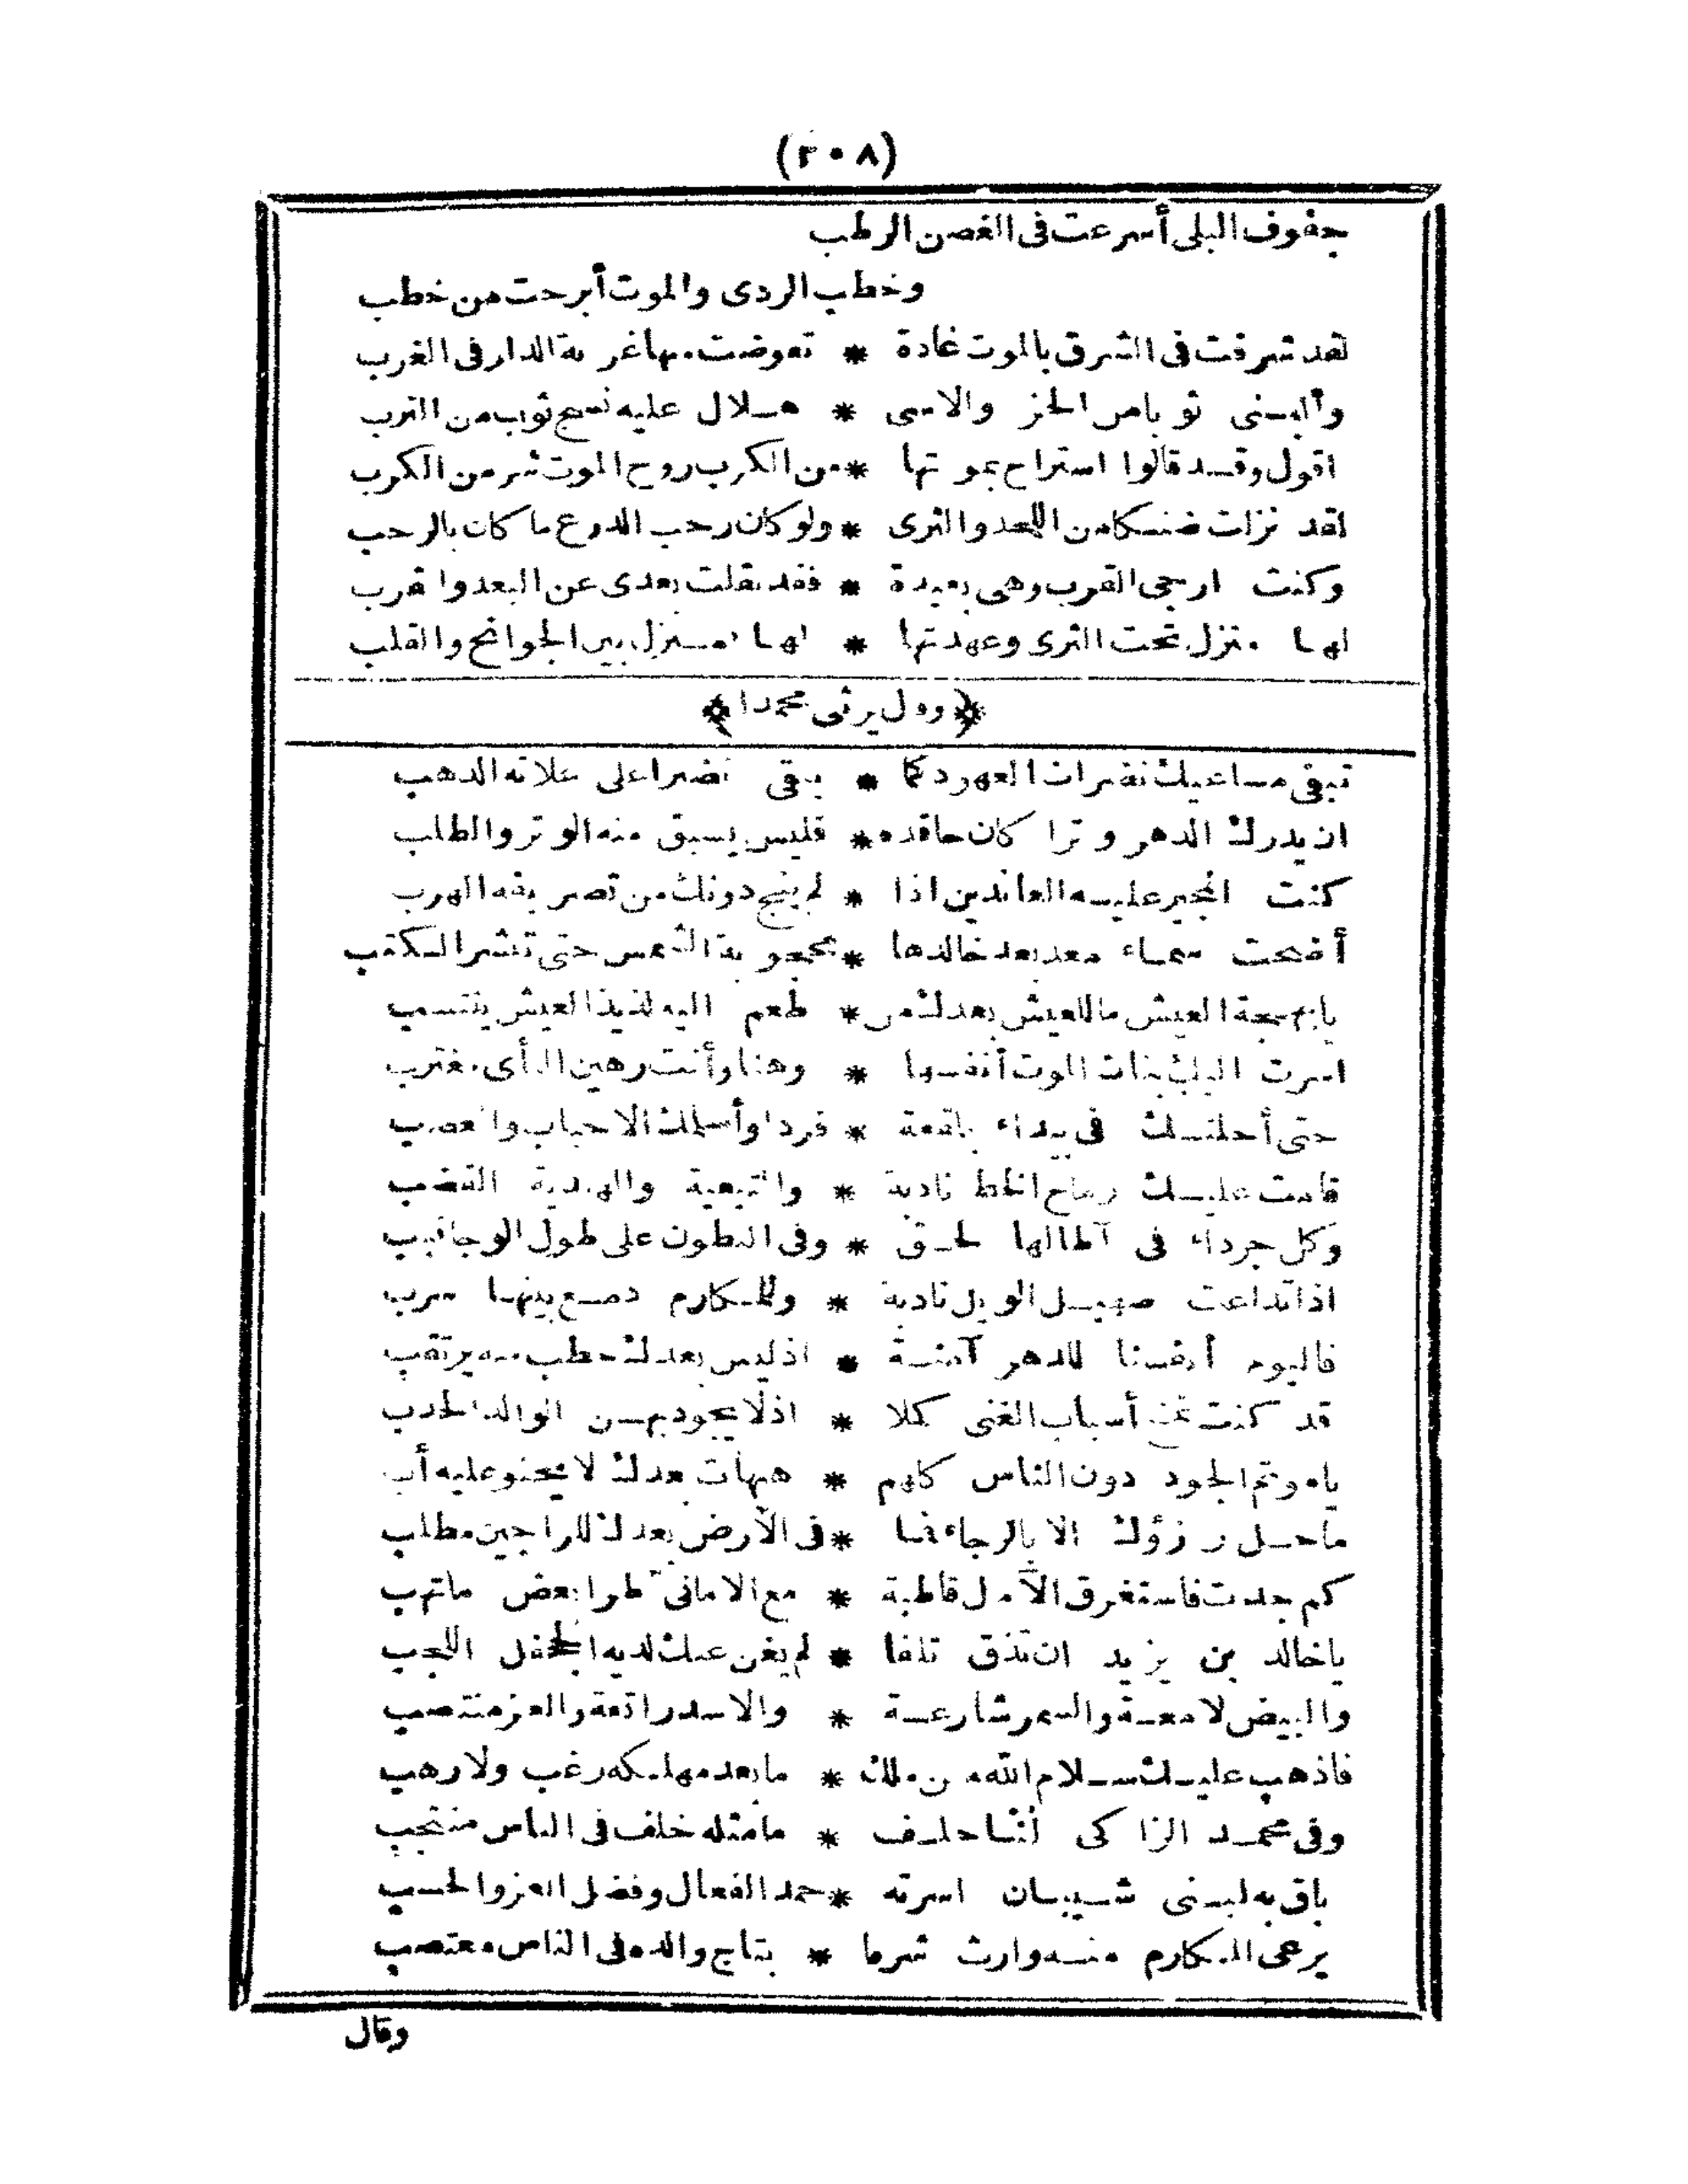 (٢٠٨)
جفوف البلى أسرعت فى الغصن الرطب
وخطب الردى والموت أبرحت من خطب
لقد شرقت فى الشرق بالموت غادة * تعوضت منها غربة الدار فى الغرب
وألبسنى ثوبا من الحزن والاسى * هلال عليه نسج ثوب من الترب
اقول وقد قالوا استراح بموتها * من الكرب روح الموت شر من الكرب
لقد نزلت ضنكا من اللحد والثرى * ولو كان رحب الدرع ما كان بالرحب
وكنت ارجى القرب وهى بعيدة * فقد نقلت بعدى عن البعد والقرب
لها منزل تحت الثرى وعهدتها * لها منزل بين الجوانح والقلب
﴿وقال يرثى محمدا﴾
تبقى مساعيك نضرات العهود كما * يبقى نضيرا على علاته الذهب
ان يدرك الدهر وترا كان حاقده * فليس يسبق منه الوتر والطلب
كنت المجير عليه العائذين اذا * لم ينج دونك من تصريفه الهرب
أضحت سماء معد بعد خالدها * محجوبة الشمس حتى تنشر الكتب
يا بهجة العيش ما للعيش بعدك من * طعم اليه لذيذ العيش ينتسب
اسرت اليك بنات الموت أنفسها * وهنا وأنت رهين النأى مغترب
حتى أحلتك فى بيداء بلقعة * فردا وأسلمك الاحباب والعصب
قامت عليك رماح الخط نادبة * والتبعية والهندية القضب
وكل جرداء فى آطالها لحق * وفى البطون على طول الوجا قبب
اذا تداعت صهيل الويل نادبة * وللمكارم دمع بينها سرب
فاليوم أنفسنا للدهر آمنة * اذ ليس بعدك خطب منه يرتقب
قد كنت تمنح أسباب الغنى كملا * اذ لا يجود بهن الوالد الحدب
يا موتم الجود دون الناس كلهم * هيهات بعدك لا يحنو عليه أب
ما حل رزؤك الا بالرجاء فما * فى الأرض بعدك للراجين مطلب
كم جدت فاستغرق الآمال قاطبة * مع الامانى طرا بعض ما تهب
يا خالد بن يزيد ان تذق تلفا * لم يغن عنك لديه الجحفل اللجب
والبيض لامعة والسمر شارعة * والاسد راتعة والعز منتصب
فاذهب عليك سلام الله من ملك * ما بعد مهلكه رغب ولا رهب
وفى محمد الزاكى لنا خلف * ما مثله خلف فى الناس منتجب
باق به لبنى شيبان اسرته * حمد الفعال وفضل العز والحسب
يرعى المكارم منه وارث شرفا * بتاج والده فى الناس معتصب
وقال